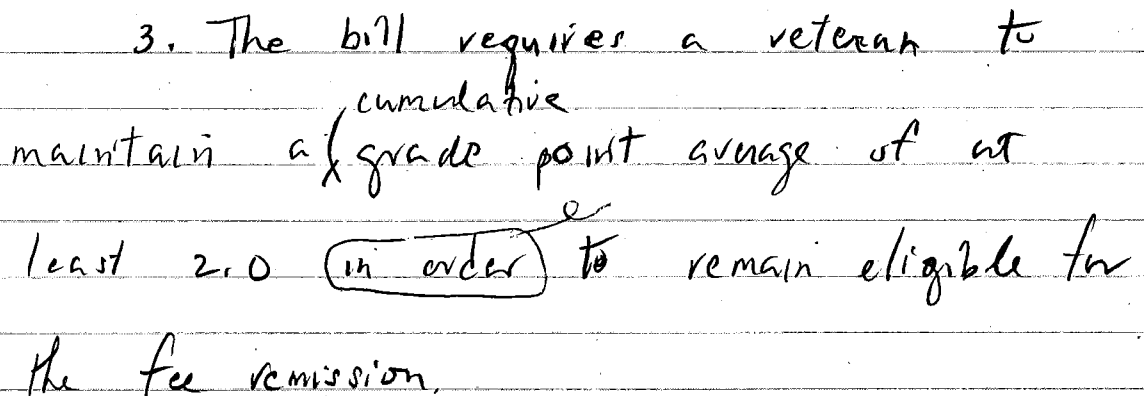 3. The bill requires a veteran to
cumulative
maintain a grade point average of at
least 2.0 in order to remain eligible for
the fee remission.